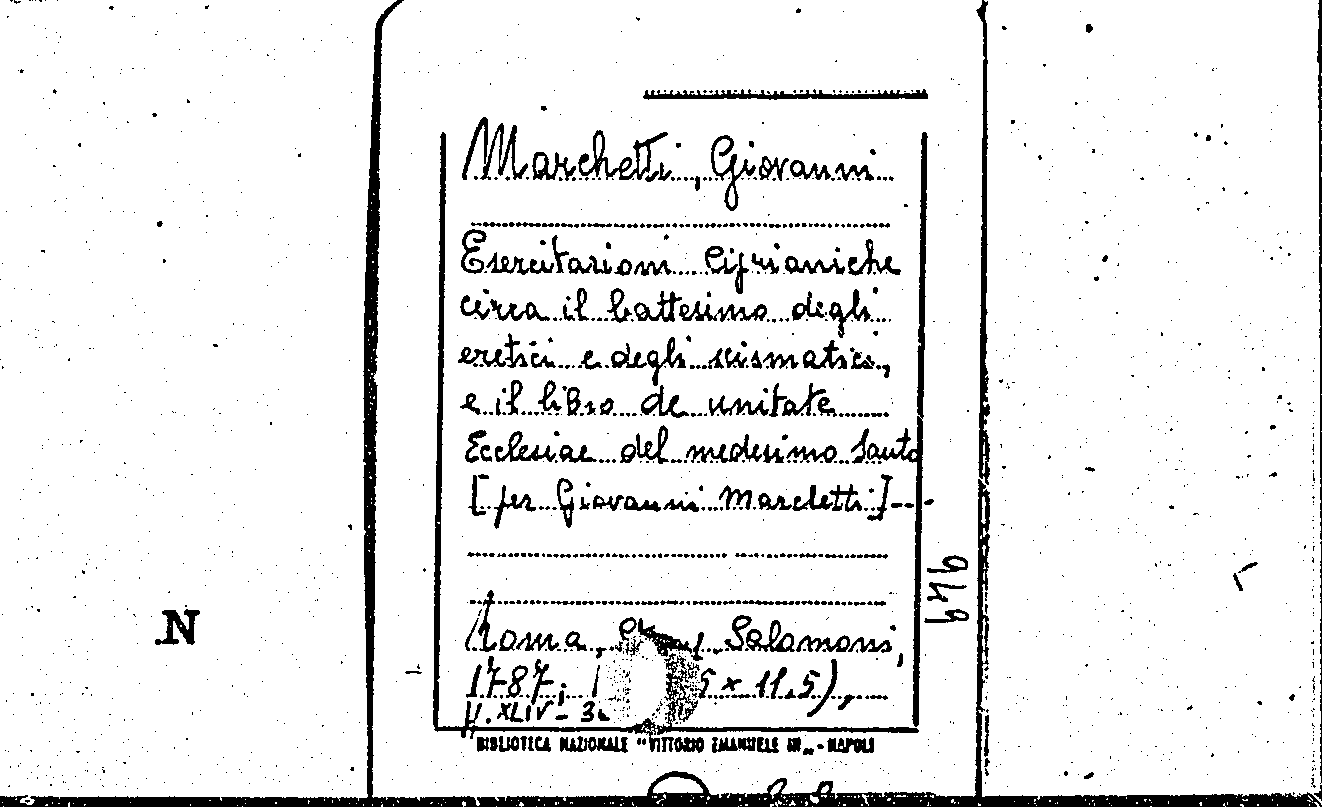 Marchetti, Giovanni
Esercitazioni Ciprianiche
circa il battesimo degli
eretici e degli scismatici,
e il libro de unitate
Ecclesiae del medesimo Santo
[per Giovanni Marchetti]---
Roma, Salomoni,
1787; × 11.5),
XLIV-
BIBLIOTECA NAZIONALE "VITTORIO EMANUELE III" - NAPOLI
949
N